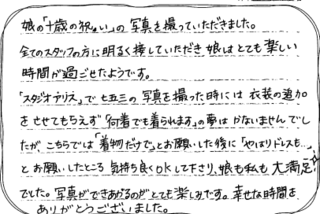 娘の「十歳の祝い」の写真を撮っていただきました。
全てのスタッフの方に明るく接していただき娘はとても楽しい
時間が過ごせたようです。
「スタジオアリス」で七五三の写真を撮った時には衣装の追加
をさせてもらえず「何着でも着られます」の夢はかないませんでし
たが、こちらでは「着物だけで」とお願いした後に「やはりドレスも…」
とお願いしたところ気持ち良くOKして下さり、娘も私も大満足
でした。写真ができあがるのがとても楽しみです。幸せな時間を
ありがとうございました。